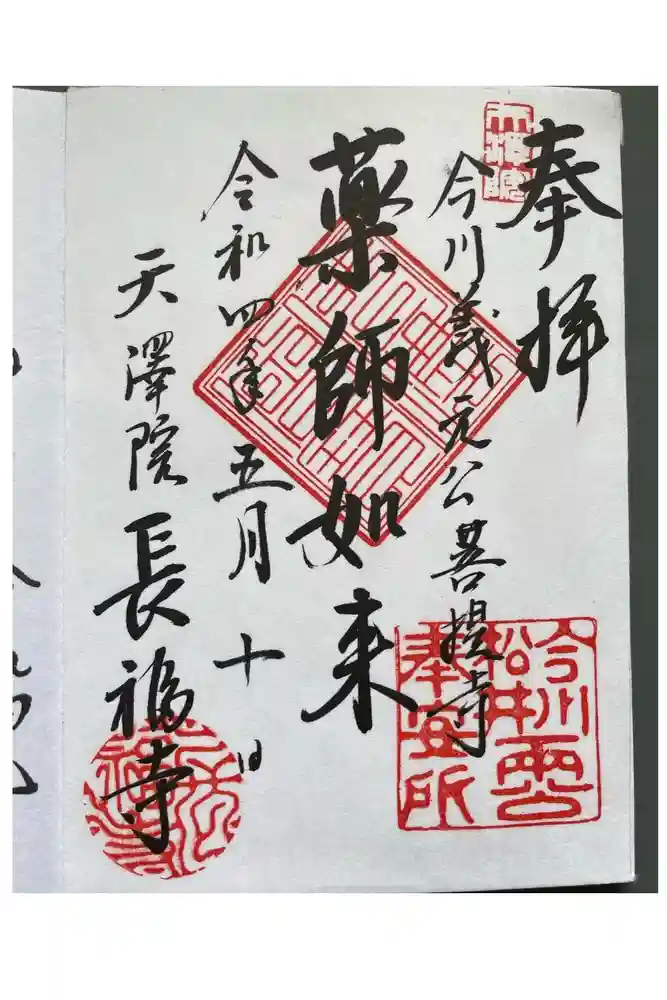 奉拝
今川義元公菩提寺
薬師如来
令和四年五月十日
天澤院
長福寺
天澤院
今川
松井両公
奉安所